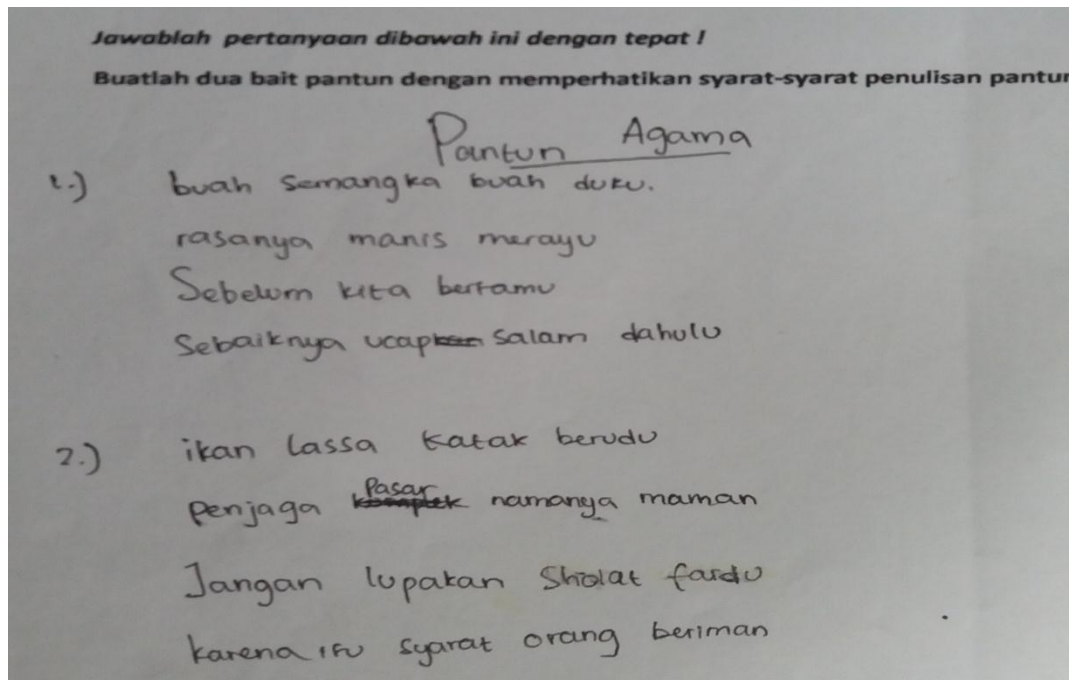 Jawablah pertanyaan dibawah ini dengan tepat !
Buatlah dua bait pantun dengan memperhatikan syarat-syarat penulisan pantun
Pantun Agama
1.) buah semangka buah duku.
rasanya manis merayu
Sebelum kita bertamu
Sebaiknya ucap salam dahulu
2.) ikan lassa katak berudu
Penjaga Pasar namanya maman
Jangan lupakan Sholat fardu
karena itu syarat orang beriman